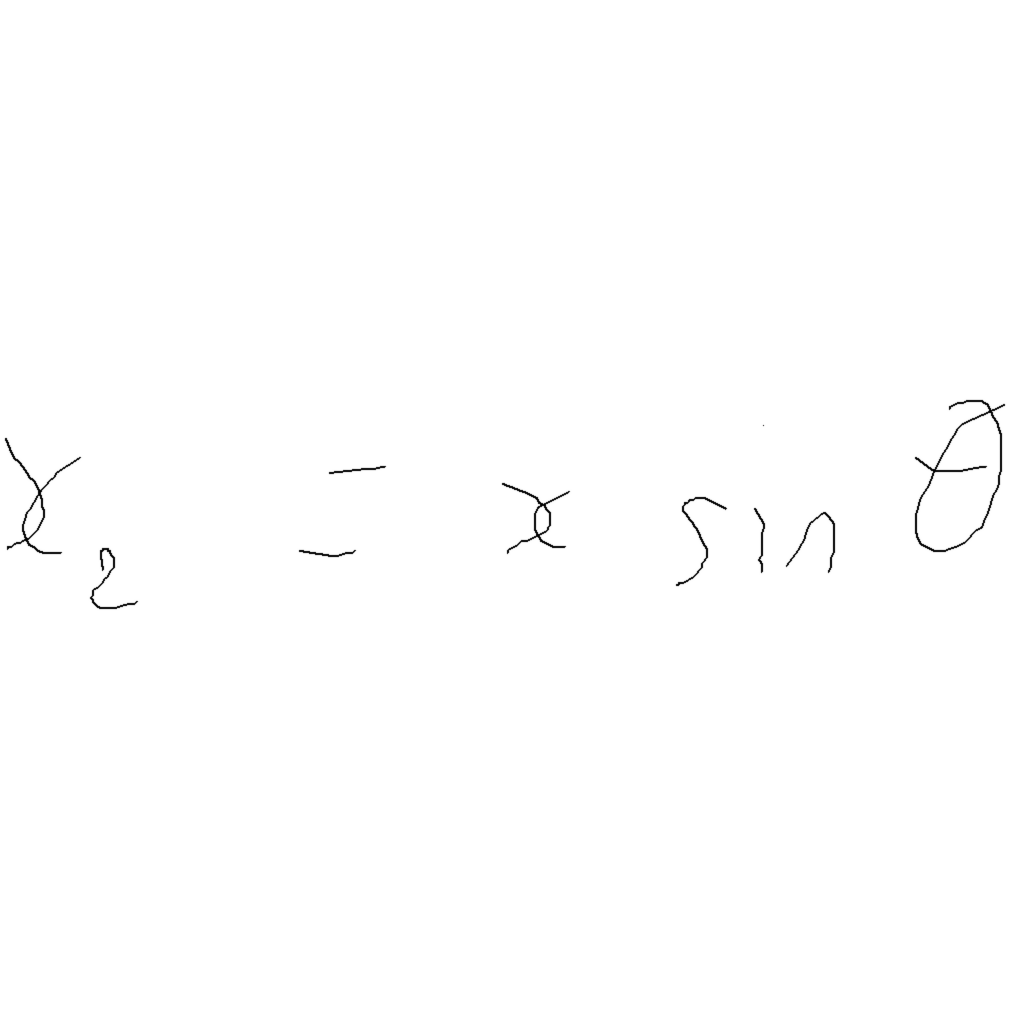 x₂ = x sin θ